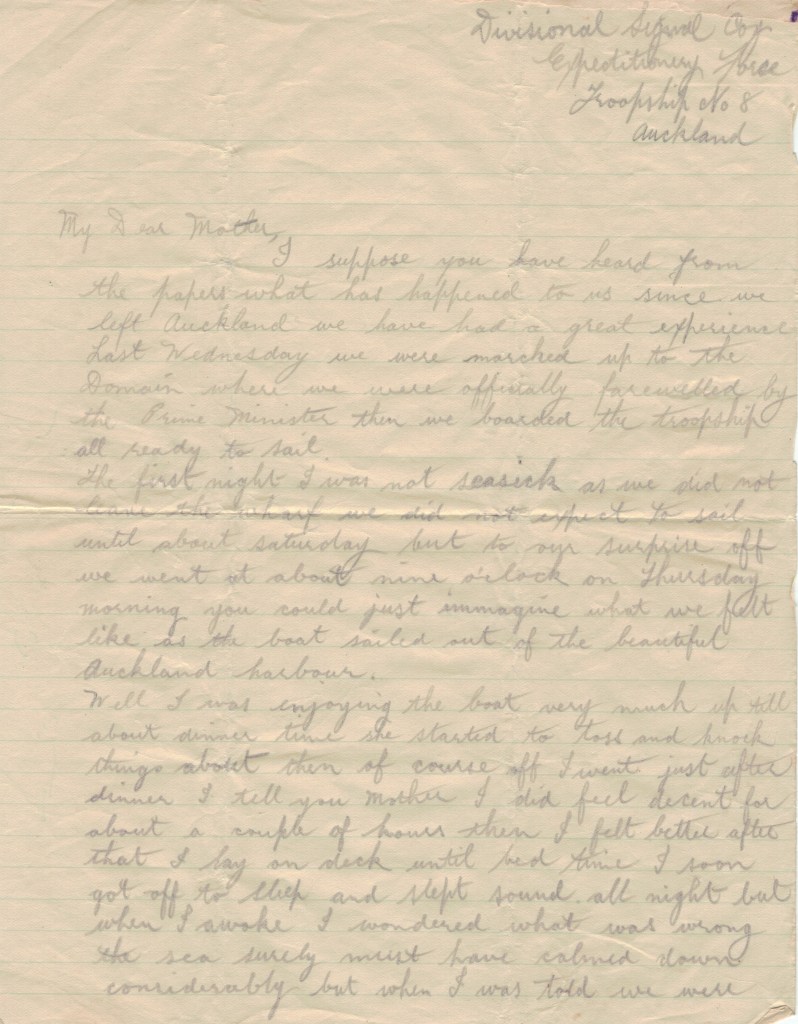 Divisional Signal Coy
Expeditionery Force
Troopship No 8
Auckland
My Dear Mother,
I suppose you have heard from
the papers what has happened to us since we
left Auckland we have had a great experience
Last Wednesday we were marched up to the
Domain where we were officially farewelled by
the Prime Minister then we boarded the troopship
all ready to sail.
The first night I was not seasick as we did not
leave the wharf we did not expect to sail
until about saturday but to oyr surprise off
we went at about nine o'clock on Thursday
morning you could just immagine what we felt
like as the boat sailed out of the beautiful
Auckland harbour.
Well I was enjoying the boat very much up till
about dinner time she started to toss and knock
things about then of course off I went just after
dinner I tell you Mother I did feel decent for
about a couple of hours then I felt better after
that I lay on deck until bed time I soon
got off to sleep and slept sound all night but
when I awoke I wondered what was wrong
the sea surely must have calmed down
considerably but when I was told we were